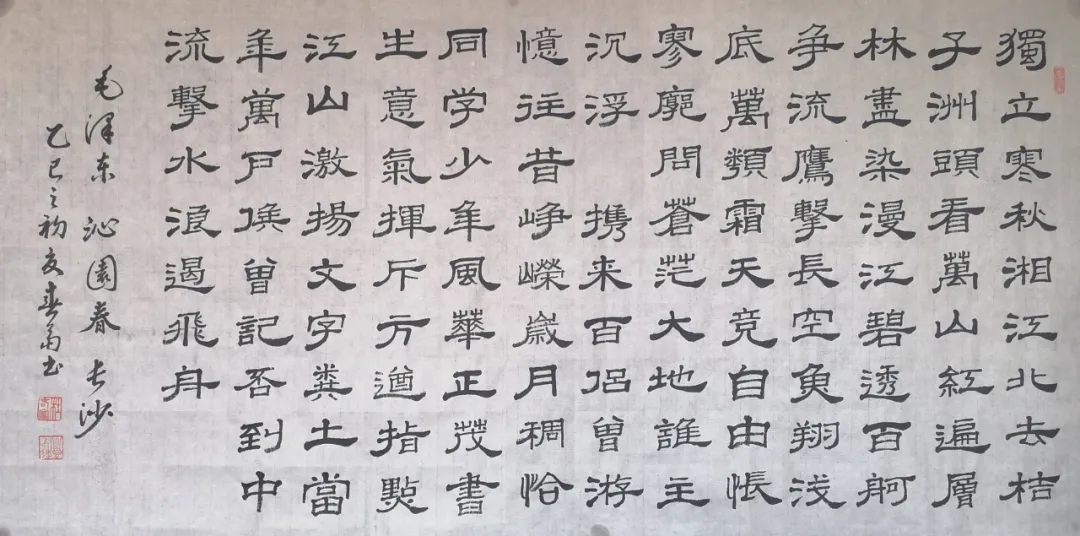 獨立寒秋湘江北去桔
子洲頭看萬山紅遍層
林盡染漫江碧透百舸
争流鷹擊長空魚翔浅
底萬類霜天竞自由悵
寥廓問蒼茫大地誰主
沉浮 携来百侣曾游
憶往昔峥嶸歲月稠恰
同学少年風華正茂書
生意氣揮斥方遒指點
江山激揚文字糞土當
年萬户侯曾記否到中
流擊水浪遏飛舟
毛泽东沁園春长沙
乙巳之初夏书